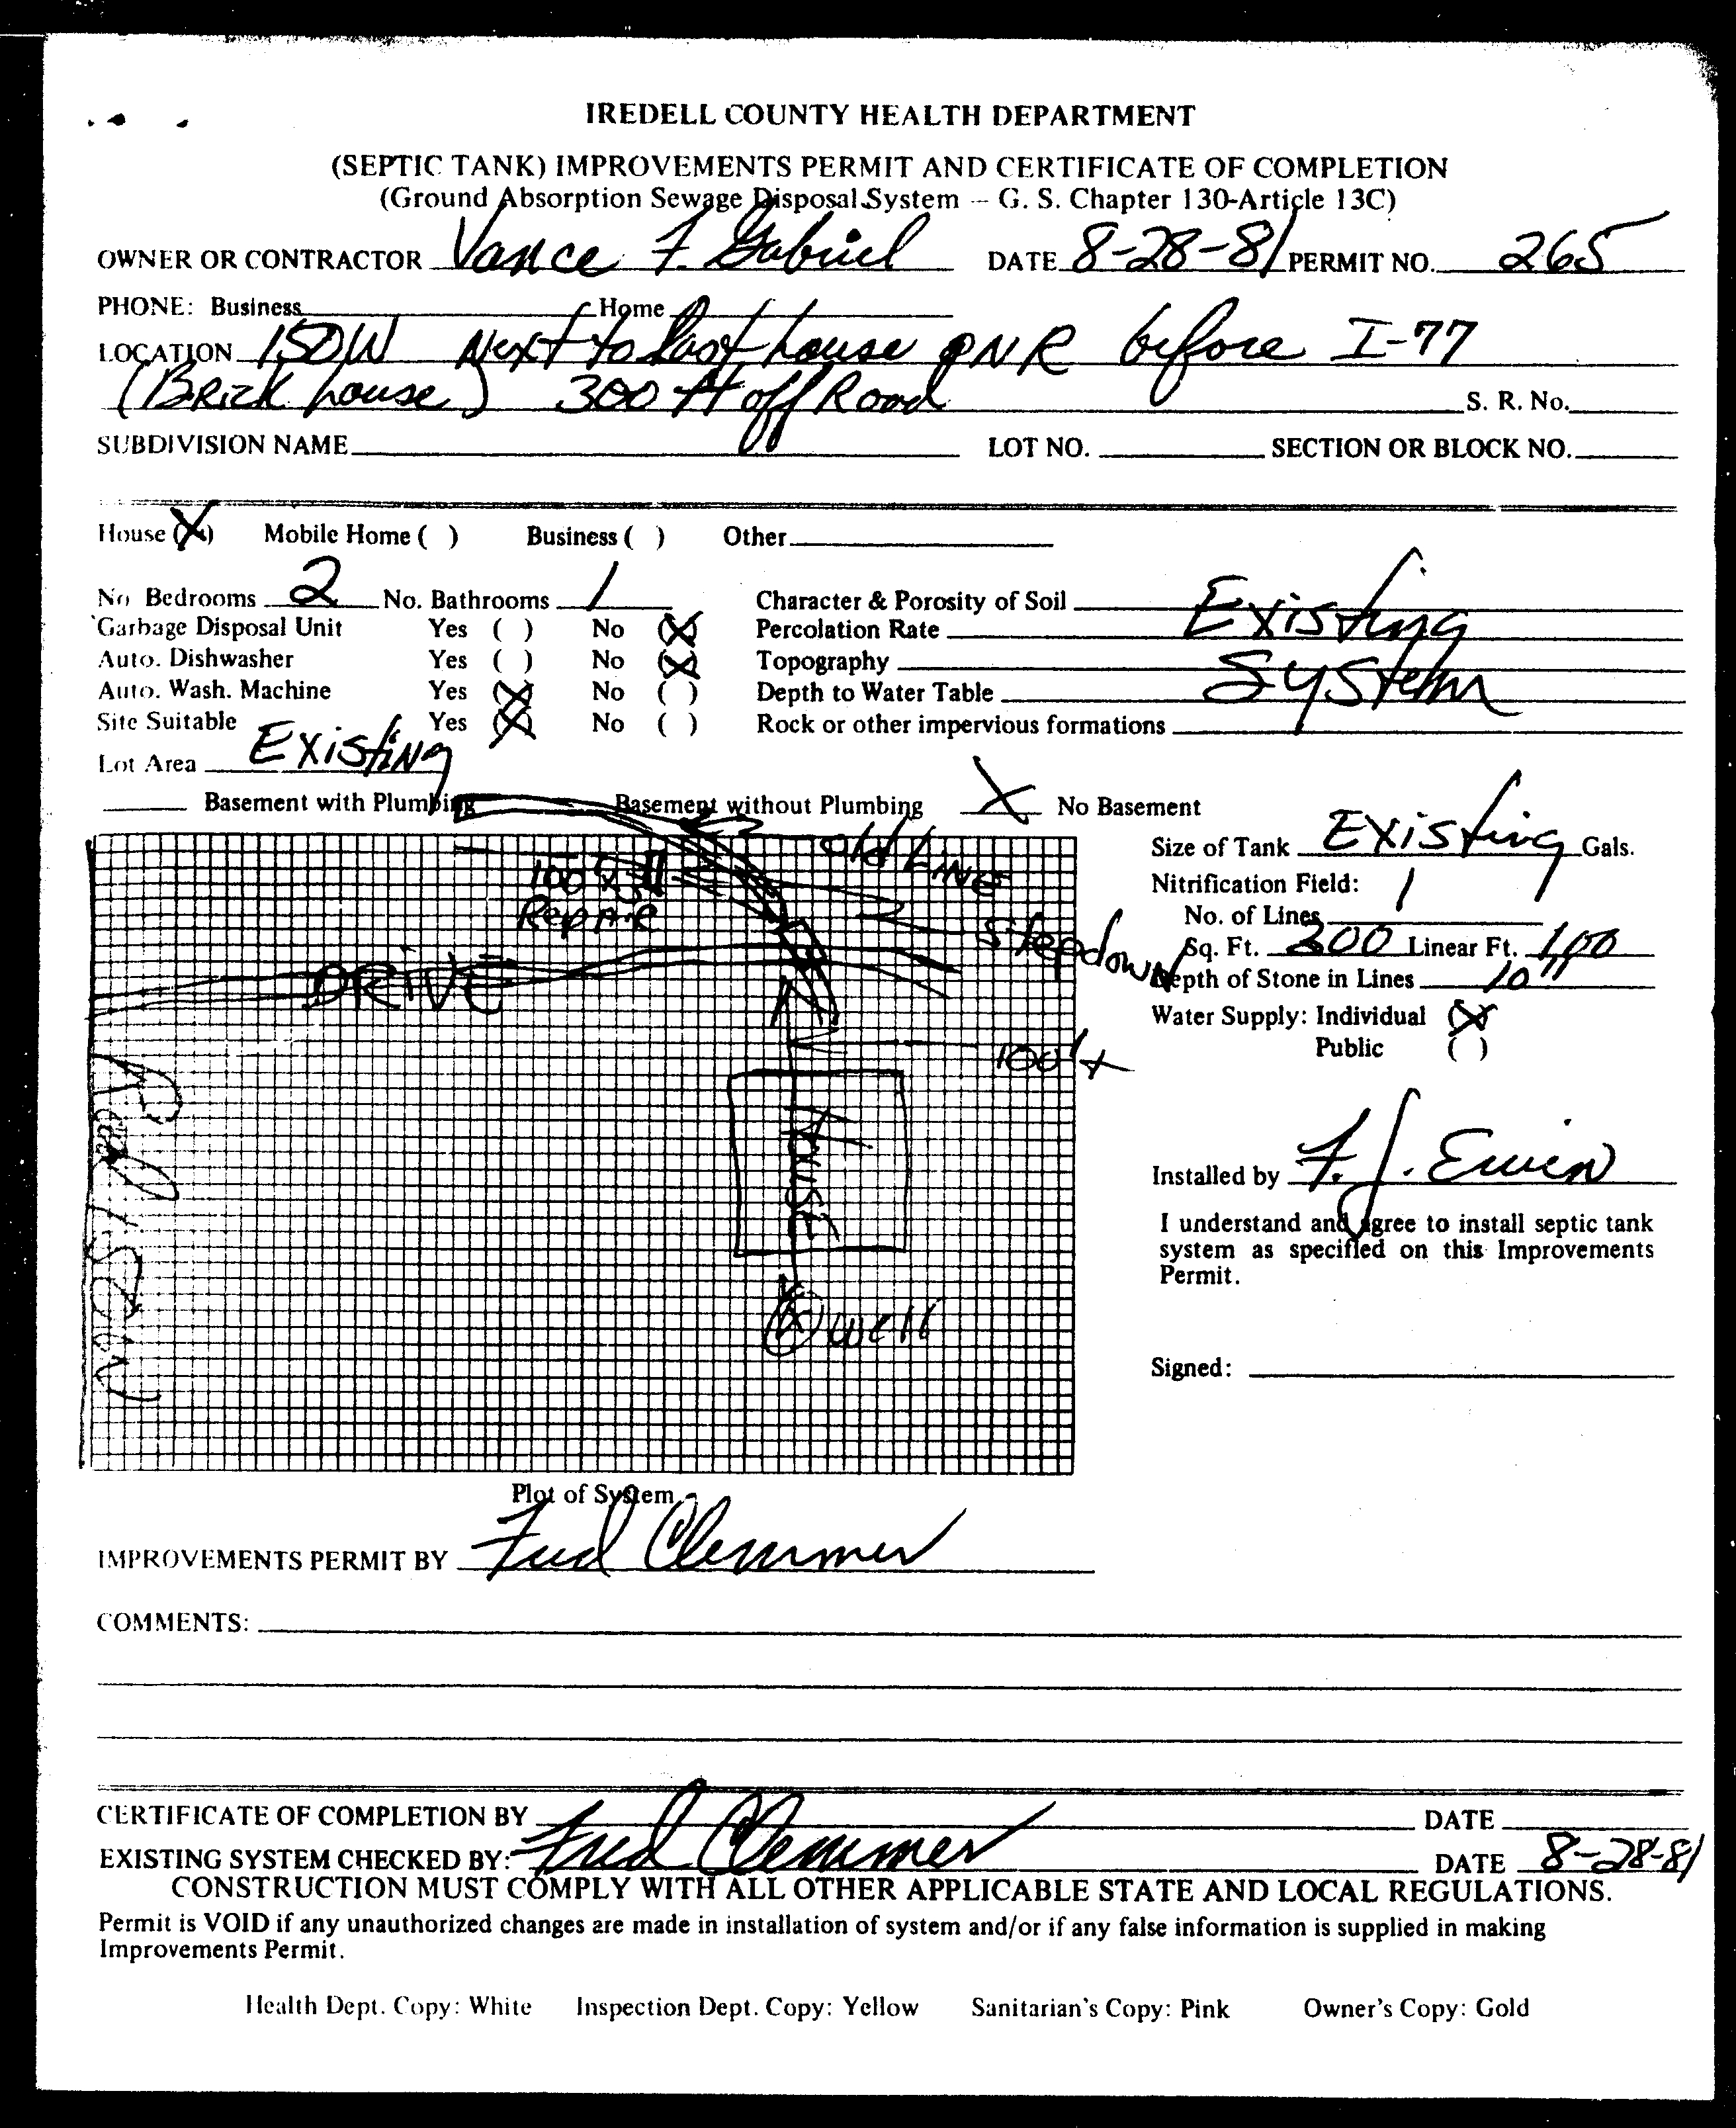 IREDELL COUNTY HEALTH DEPARTMENT
(SEPTIC TANK) IMPROVEMENTS PERMIT AND CERTIFICATE OF COMPLETION
(Ground Absorption Sewage Disposal System -- G. S. Chapter 130-Article 13C)
OWNER OR CONTRACTOR Vance F. Gabriel DATE 8-28-81 PERMIT NO. 265
PHONE: Business Home
LOCATION 150W Next to last house ON R before I-77
(Brick house) 300 ft off Road S. R. No.
SUBDIVISION NAME LOT NO. SECTION OR BLOCK NO.
House (X) Mobile Home ( ) Business ( ) Other
No Bedrooms 2 No. Bathrooms 1 Character & Porosity of Soil Existing
Garbage Disposal Unit Yes ( ) No (X) Percolation Rate
Auto. Dishwasher Yes ( ) No (X) Topography System
Auto. Wash. Machine Yes (X) No ( ) Depth to Water Table
Site Suitable Yes (X) No ( ) Rock or other impervious formations
Lot Area Existing
Basement with Plumbing Basement without Plumbing X No Basement
Size of Tank Existing Gals.
old LINE
100' x 3'
Repair
Nitrification Field:
No. of Lines 1
Stepdown
Sq. Ft. 300 Linear Ft. 100
DRIVE
Depth of Stone in Lines 10"
Water Supply: Individual (X)
Public ( )
100'+
Road 150W
HOUSE
well
Installed by F. J. Ewin
I understand and agree to install septic tank
system as specified on this Improvements
Permit.
Signed:
Plot of System
IMPROVEMENTS PERMIT BY Fred Clemmer
COMMENTS:
CERTIFICATE OF COMPLETION BY DATE
EXISTING SYSTEM CHECKED BY: Fred Clemmer DATE 8-28-81
CONSTRUCTION MUST COMPLY WITH ALL OTHER APPLICABLE STATE AND LOCAL REGULATIONS.
Permit is VOID if any unauthorized changes are made in installation of system and/or if any false information is supplied in making
Improvements Permit.
Health Dept. Copy: White Inspection Dept. Copy: Yellow Sanitarian's Copy: Pink Owner's Copy: Gold